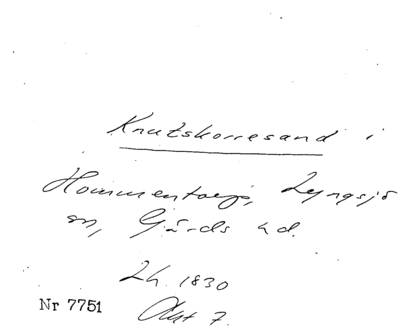 Knutskorresand i
Hommentorp, Lyngsjö
sn, Gärds hd.
24. 1830
Nr 7751
Akt 7.